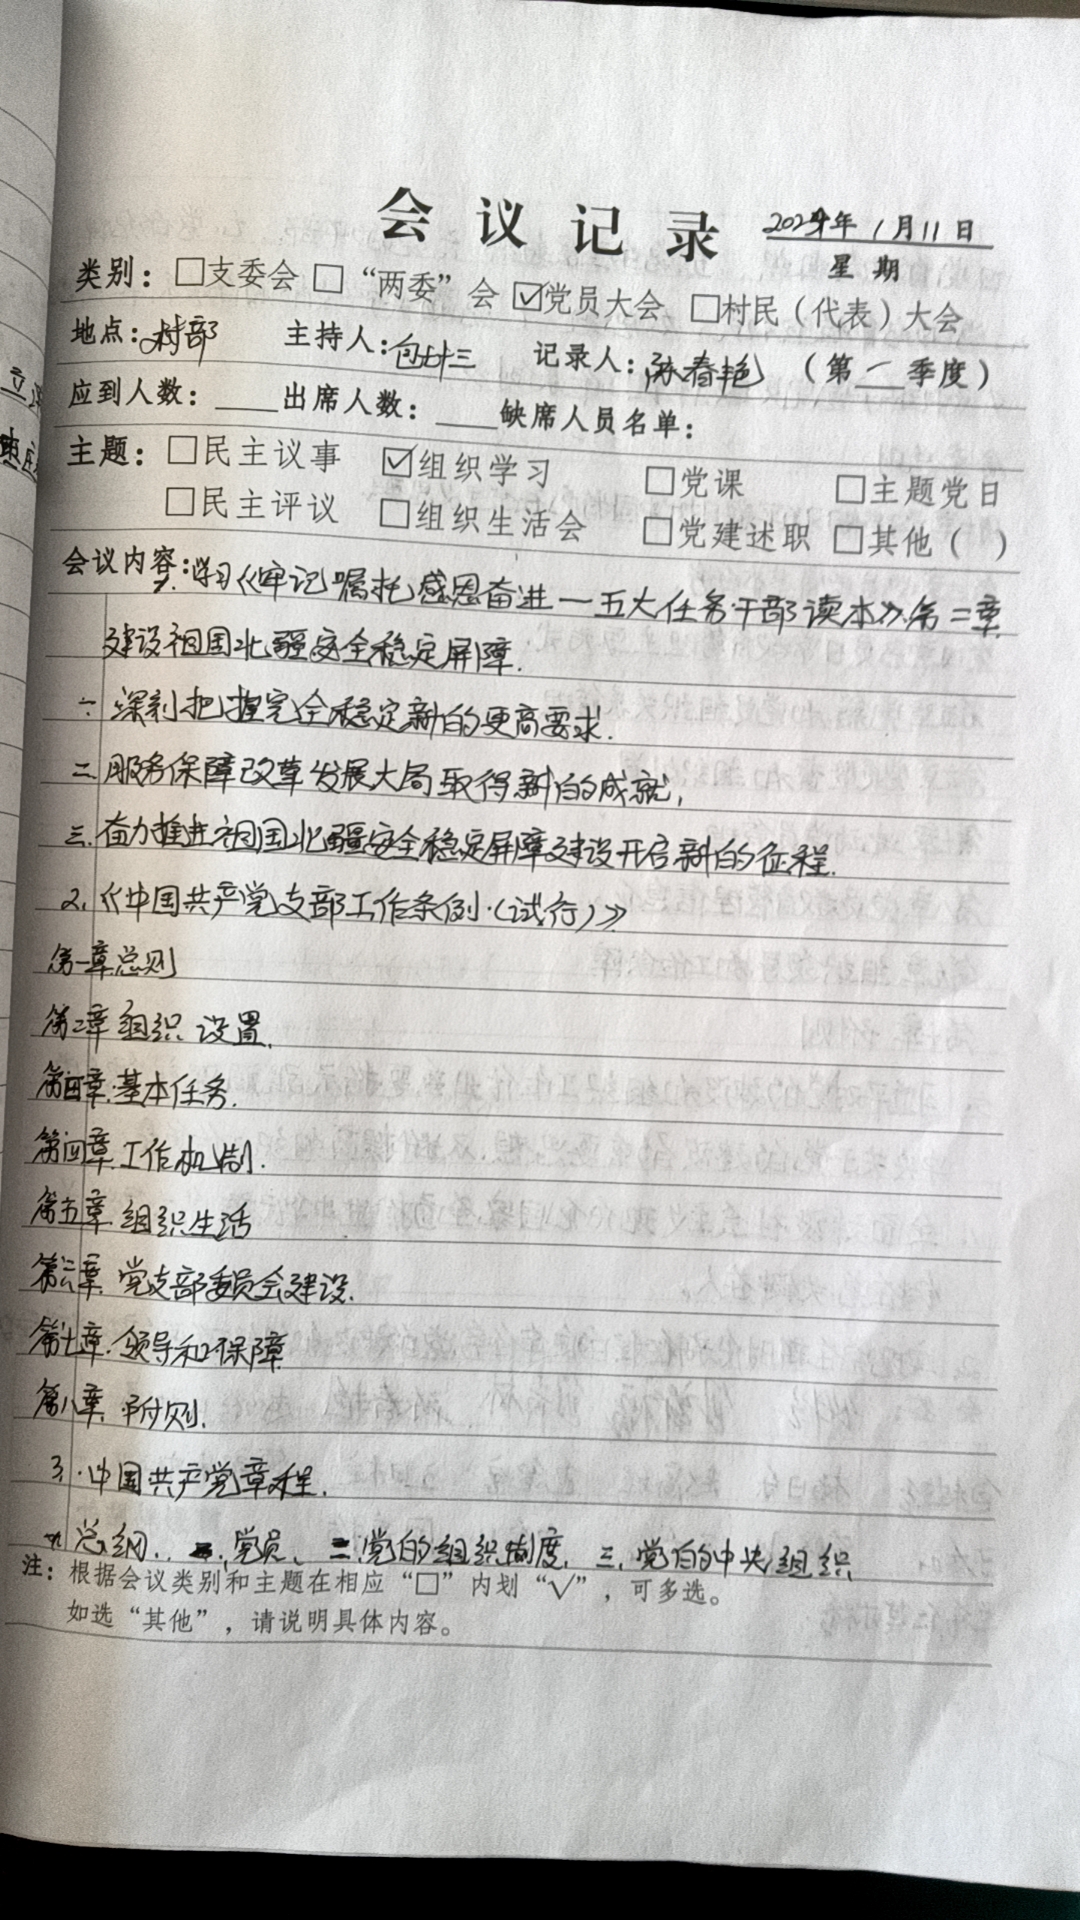 会议记录 2024年1月11日
星期
类别：□支委会 □“两委”会 ☑党员大会 □村民（代表）大会
地点：村部 主持人：包七十三 记录人：陈春艳 （第一季度）
应到人数：____出席人数：____缺席人员名单：
主题：□民主议事 ☑组织学习 □党课 □主题党日
□民主评议 □组织生活会 □党建述职 □其他（ ）
会议内容：1.学习《牢记嘱托感恩奋进一五大任务干部读本》第二章
建设祖国北疆安全稳定屏障.
一 深刻把握安全稳定新的更高要求.
二 服务保障改革发展大局取得新的成就,
三.奋力推进祖国北疆安全稳定屏障建设开启新的征程.
2.《中国共产党支部工作条例.(试行)》
第一章总则
第二章 组织 设置.
第四章.基本任务.
第四章.工作机制.
第五章.组织生活
第六章.党支部委员会建设.
第七章.领导和保障
第八章.附则.
3.中国共产党章程.
总纲. 一.党员、二.党的组织制度. 三.党的中央组织
注：根据会议类别和主题在相应“□”内划“√”，可多选。
如选“其他”，请说明具体内容。